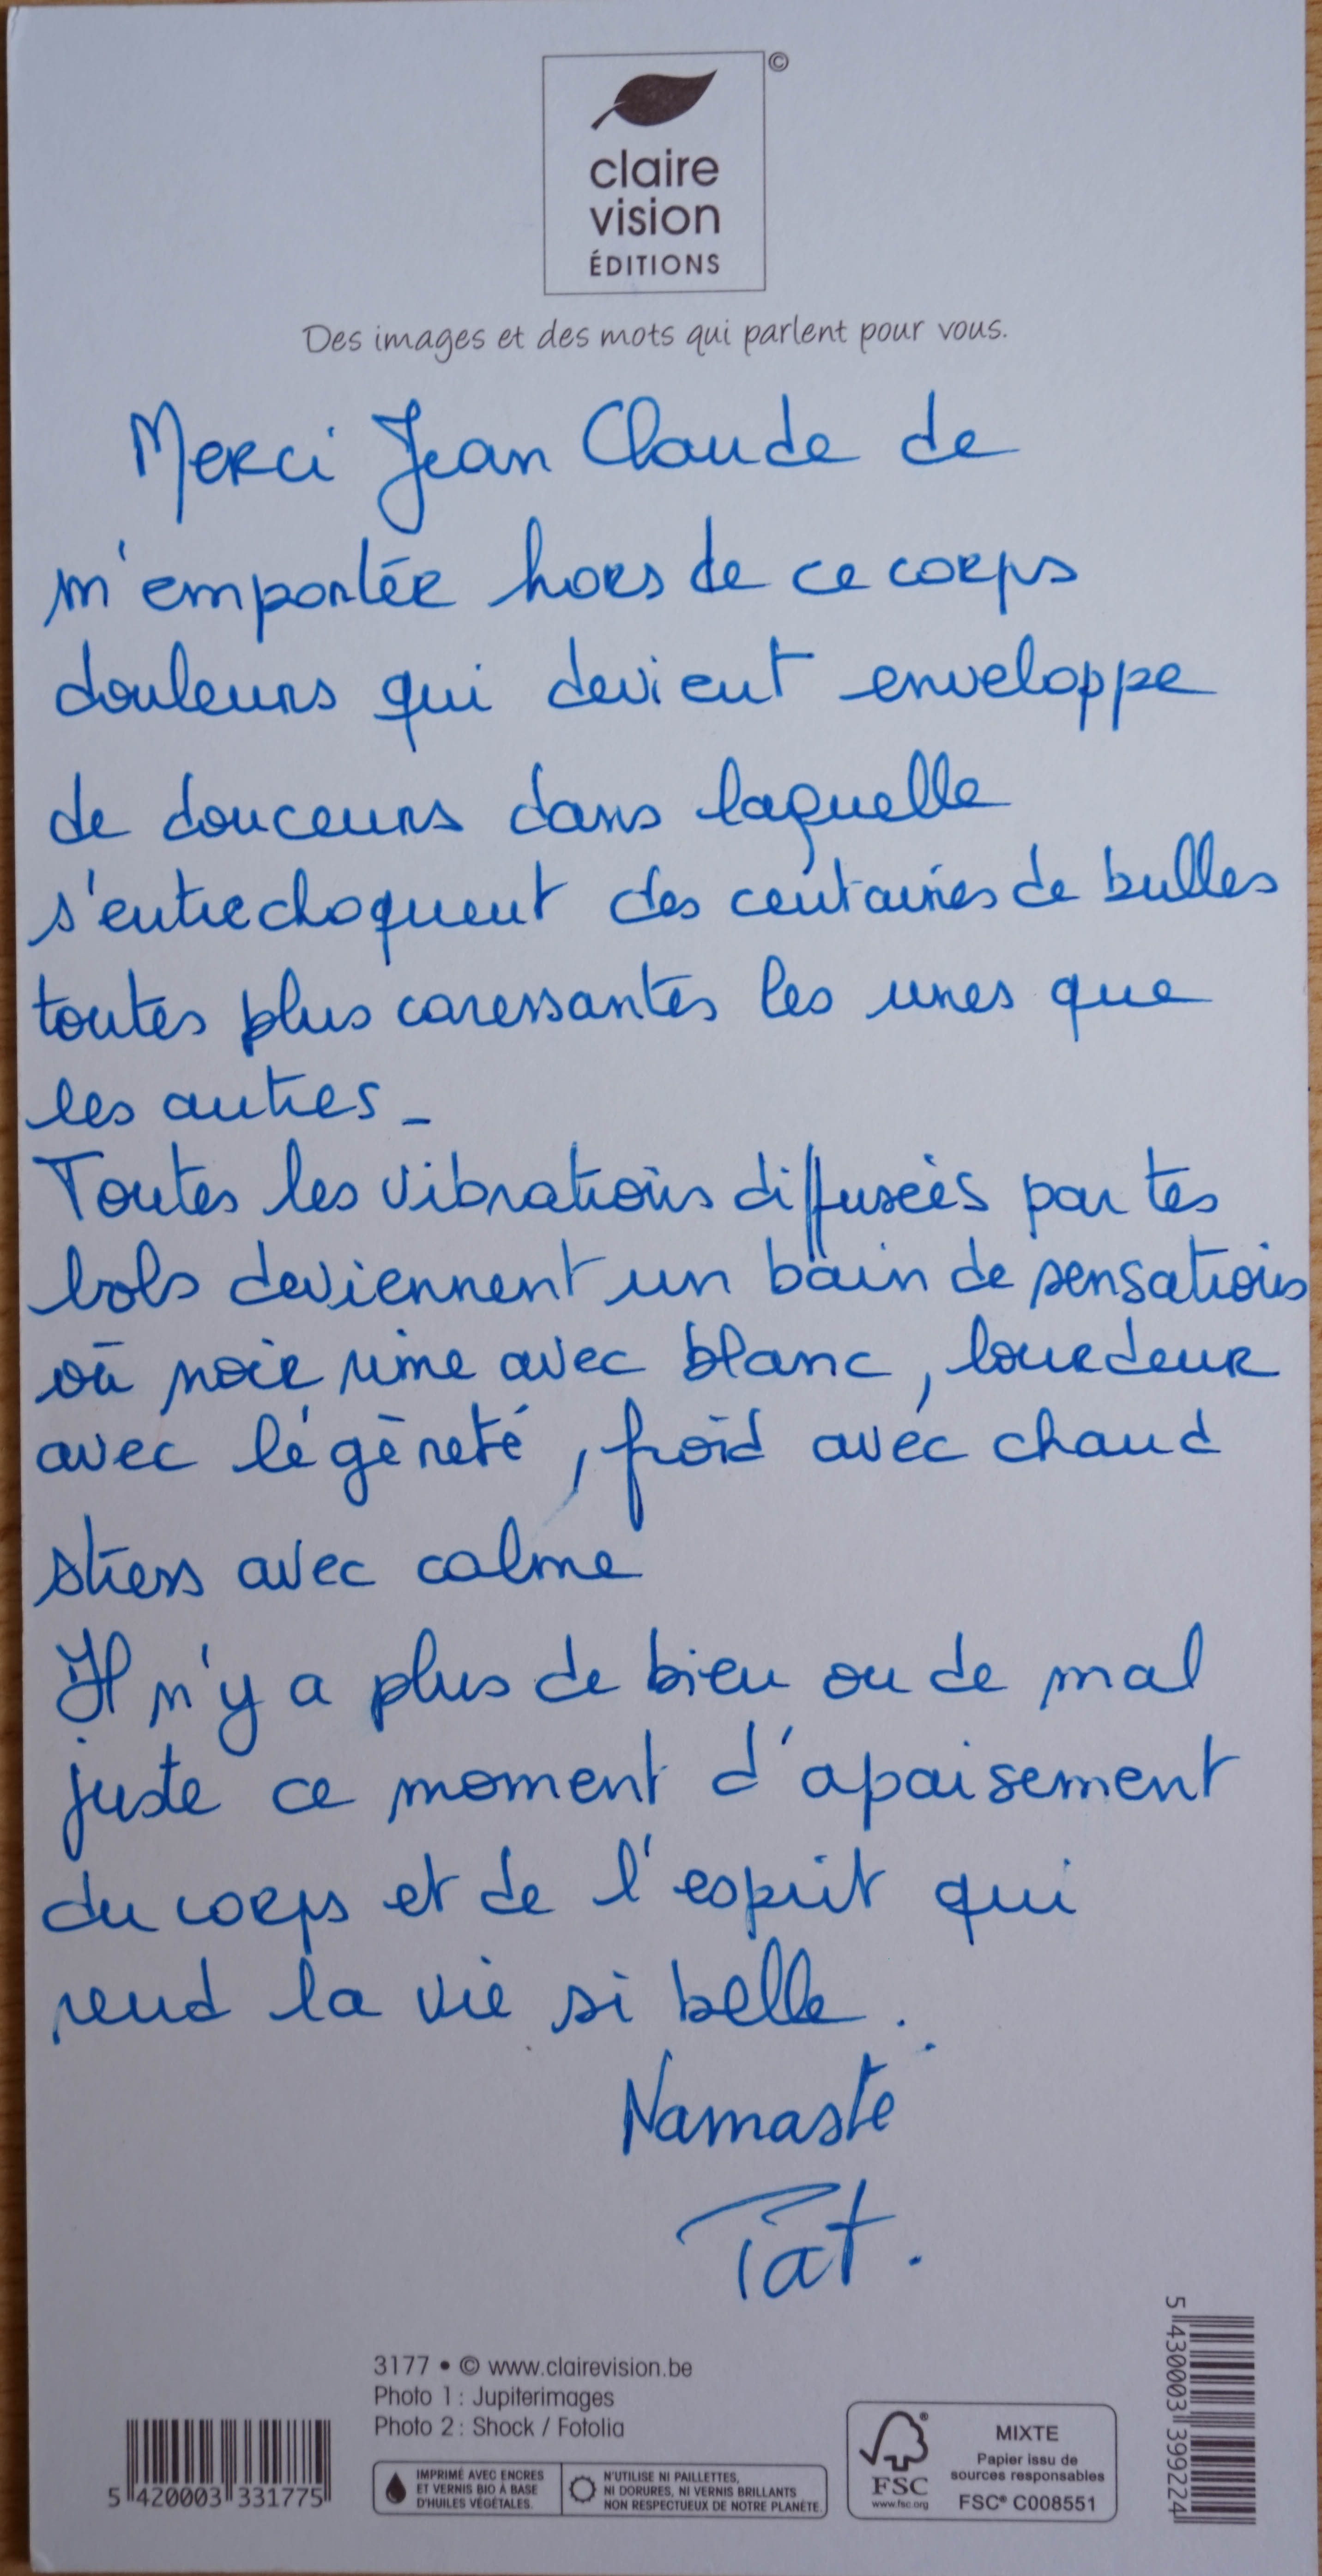 ©
claire
vision
ÉDITIONS
Des images et des mots qui parlent pour vous.
Merci Jean Claude de
m'emportée hors de ce corps
douleurs qui devient enveloppe
de douceurs dans laquelle
s'entrechoquent des centaines de bulles
toutes plus caressantes les unes que
les autres_
Toutes les vibrations diffusées par tes
bols deviennent un bain de sensations
où noir rime avec blanc, lourdeur
avec légèreté, froid avec chaud
stress avec calme
Il n'y a plus de bien ou de mal
juste ce moment d'apaisement
du corps et de l'esprit qui
rend la vie si belle.
Namasté
Pat.
3177 • © www.clairevision.be
Photo 1 : Jupiterimages
Photo 2 : Shock / Fotolia
5 420003 331775
IMPRIMÉ AVEC ENCRES
ET VERNIS BIO À BASE
D'HUILES VÉGÉTALES.
N'UTILISE NI PAILLETTES,
NI DORURES, NI VERNIS BRILLANTS
NON RESPECTUEUX DE NOTRE PLANÈTE.
FSC
www.fsc.org
MIXTE
Papier issu de
sources responsables
FSC® C008551
5 430003 399224